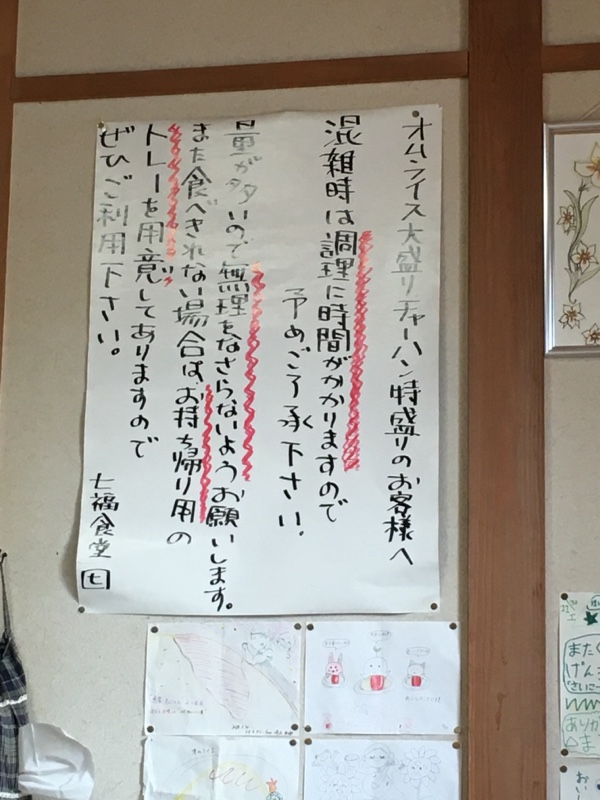 オムライス大盛りチャーハン特盛りのお客様へ
混雑時は調理に時間がかかりますので
予めご了承下さい。
量が多いので無理をなさらないようお願いします。
また食べきれない場合は、お持ち帰り用の
トレーを用意してありますので
ぜひご利用下さい。
七福食堂 七
また
げん
ありが